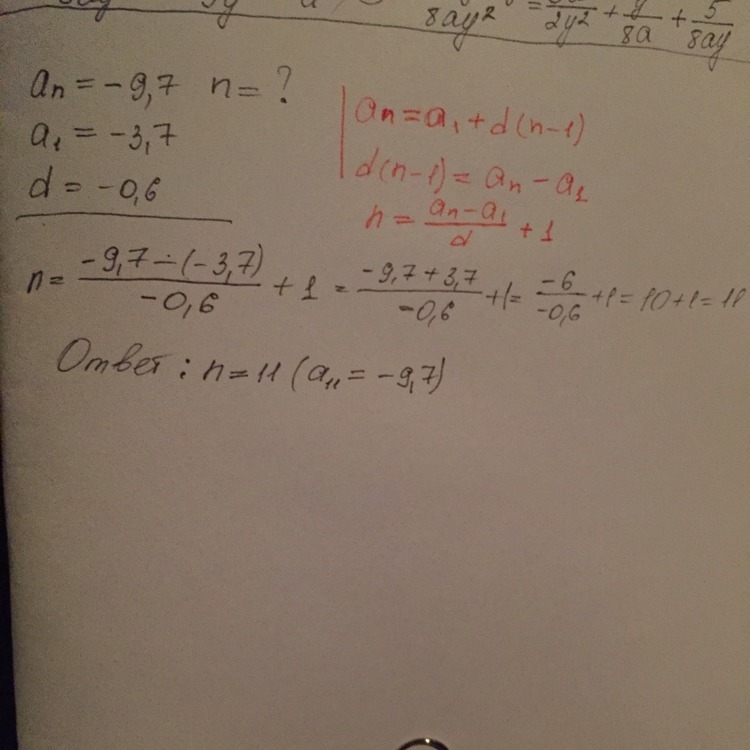 8ay² = 2y² + y/8a + 5/8ay
aₙ = -9,7 n = ?
a₁ = -3,7
d = -0,6
aₙ = a₁ + d(n-1)
d(n-1) = aₙ - a₁
n = (aₙ - a₁)/d + 1
n = (-9,7 - (-3,7))/(-0,6) + 1 = (-9,7 + 3,7)/(-0,6) + 1 = (-6)/(-0,6) + 1 = 10 + 1 = 11
Ответ : n = 11 (a₁₁ = -9,7)